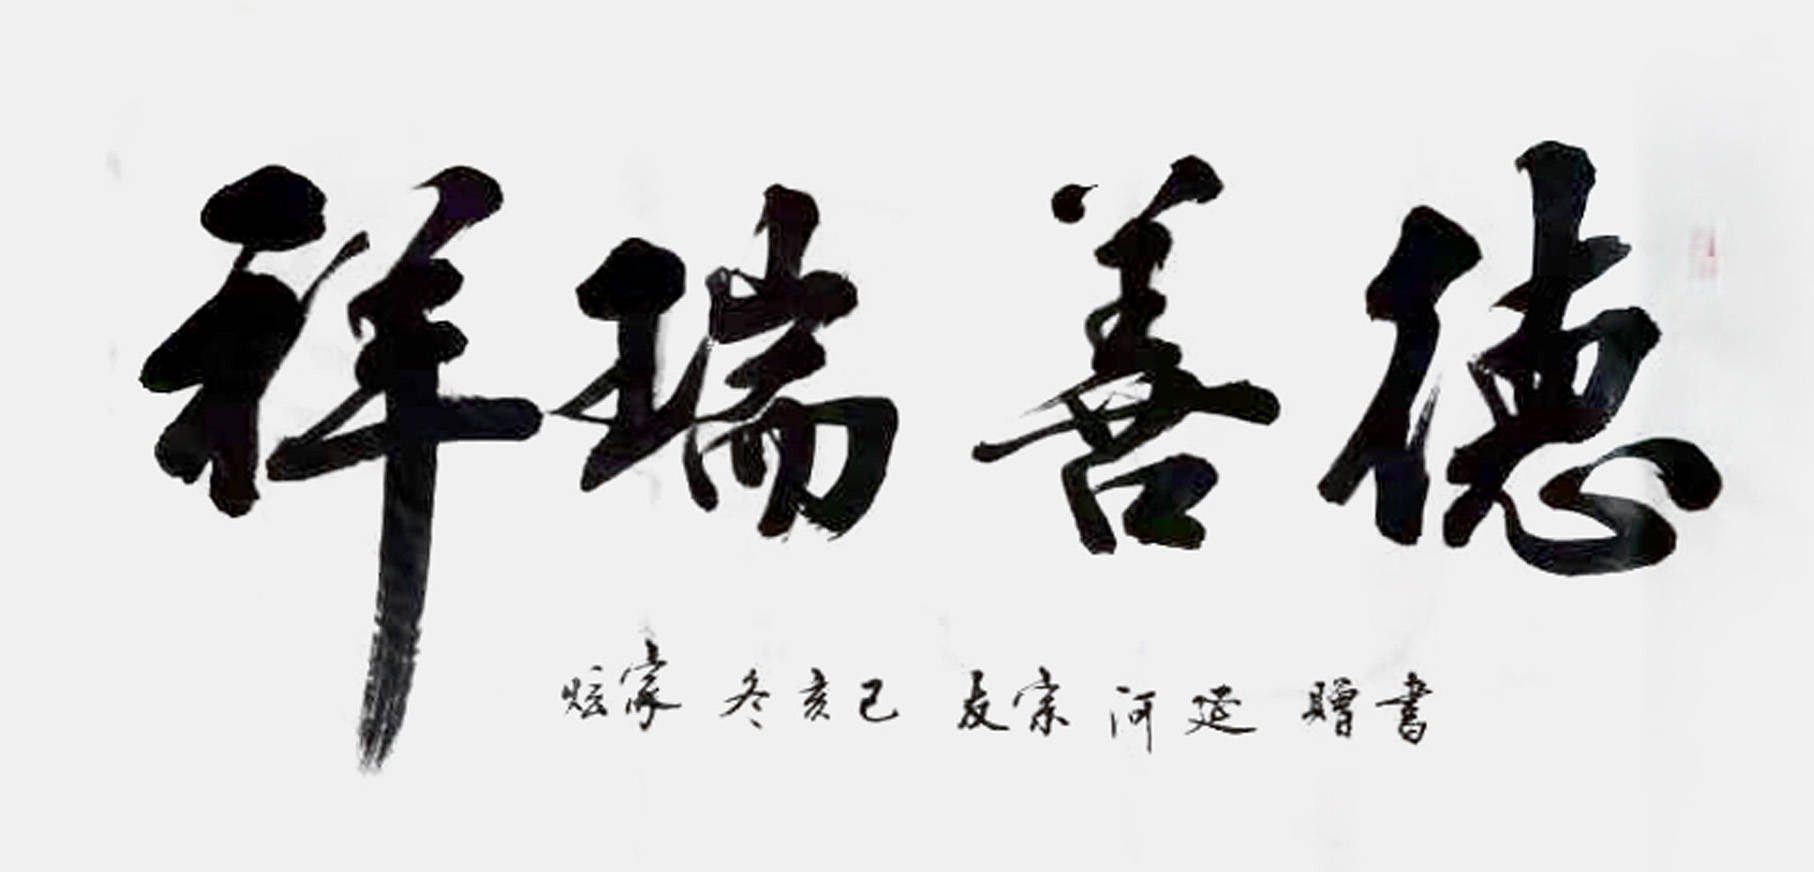 德善瑞祥
書贈 延河 宗友 己亥冬 家炫